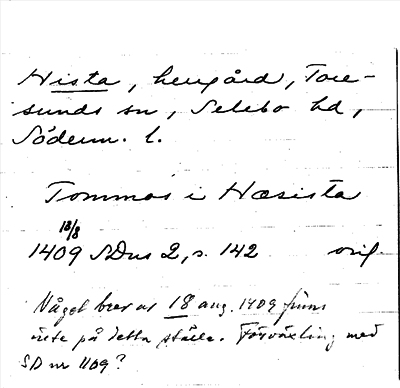 Hista, herrgård, Tore-
sunds sn, Selebo hd,
Söderm. l.
Tommos i Hæsista
18/8
1409 SDns 2, s. 142 orig.
Något brev av 18 aug. 1409 finns
inte på detta ställe. Förväxling med
SD nr 1109?